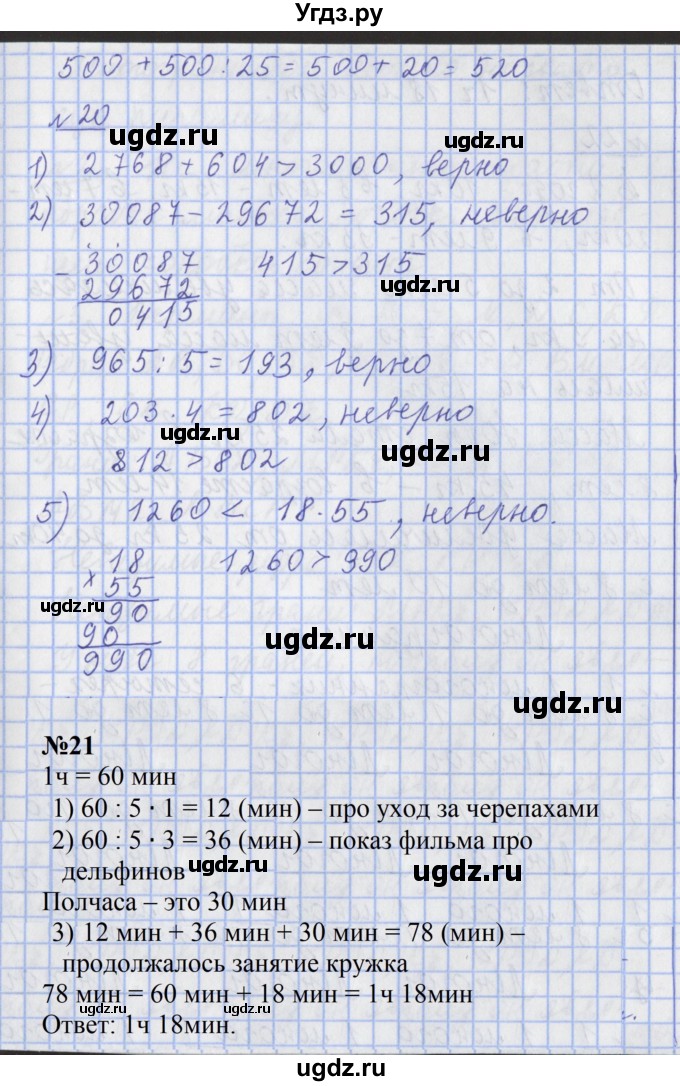 Угдз.ру
500 + 500 : 25 = 500 + 20 = 520
№20
ugdz.ru ugdz.ru
1) 2768 + 604 > 3000, верно
2) 30087 - 29672 = 315, неверно
- 30087 415 > 315
29672 ugdz.ru
0415
3) 965 : 5 = 193, верно
4) 203 · 4 = 802, неверно
ugdz.ru
812 > 802 ugdz.ru
5) 1260 < 18 · 55, неверно.
18 1260 > 990
× 55
ugdz.ru 90
90 ugdz.ru
990
ugdz.ru
№21
1ч = 60 мин
1) 60 : 5 · 1 = 12 (мин) – про уход за черепахами
2) 60 : 5 · 3 = 36 (мин) – показ фильма про
дельфинов ugdz.ru ugdz.ru
Полчаса – это 30 мин
3) 12 мин + 36 мин + 30 мин = 78 (мин) –
продолжалось занятие кружка
78 мин = 60 мин + 18 мин = 1ч 18мин
ugdz.ru ugdz.ru
Ответ: 1ч 18мин.
ugdz.ru